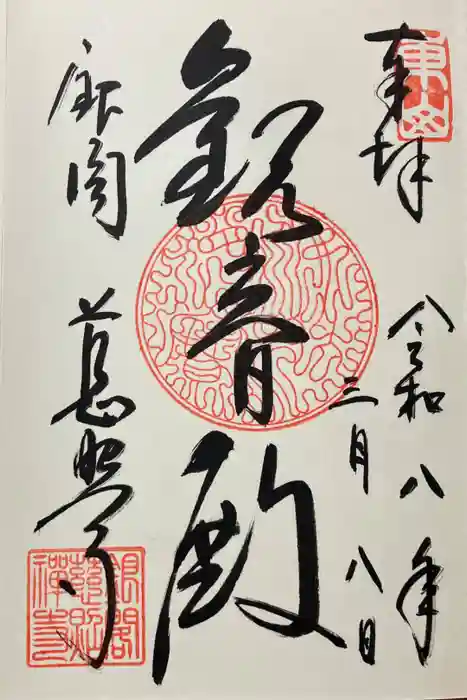 東山
奉拝
令和八年
三月八日
観音殿
銀閣
慈照寺
銀閣
慈照
禅寺